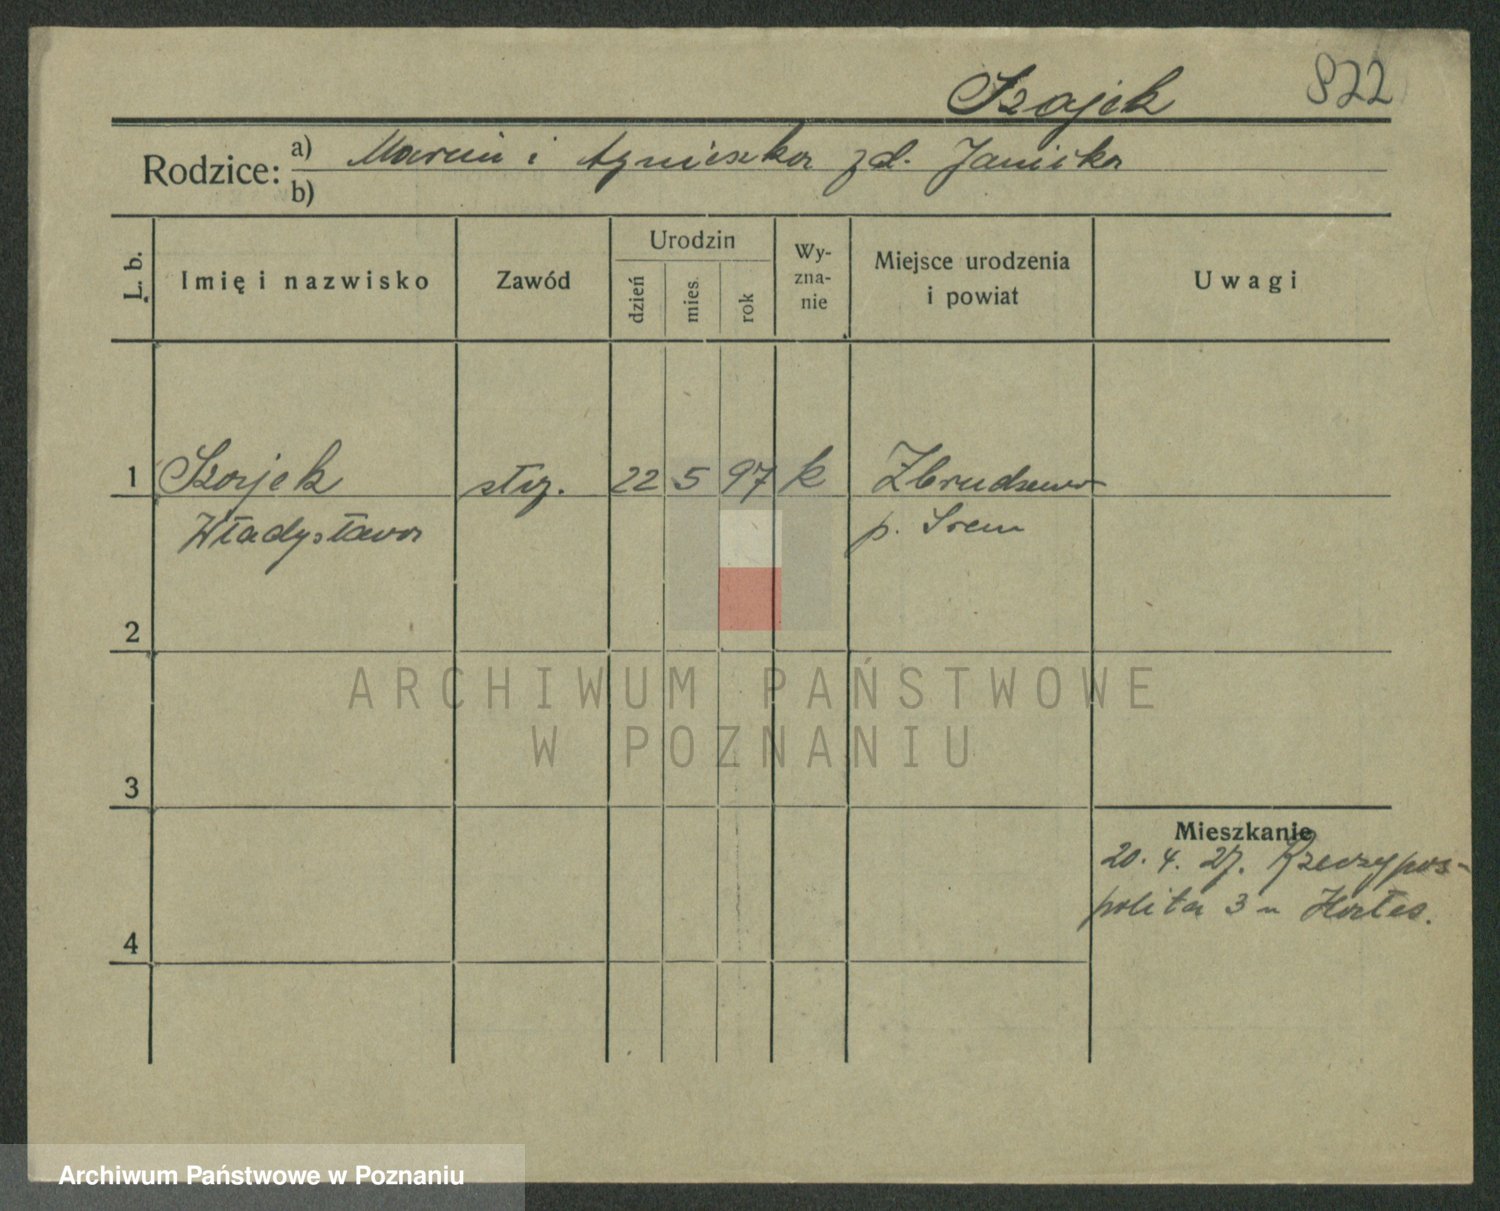 Szajek 822
Rodzice: a) Marcin i Agnieszka zd. Janiska
b)
L. b. Imię i nazwisko Zawód Urodzin dzień mies. rok Wy-zna-nie Miejsce urodzenia i powiat Uwagi
1 Szajek służ. 22 5 97 k Zbrudzewo
Władysława p. Śrem
2
ARCHIWUM PAŃSTWOWE
W POZNANIU
3
Mieszkanie
20. 4. 27. Rzeczypos-
polita 3 u
4
Archiwum Państwowe w Poznaniu